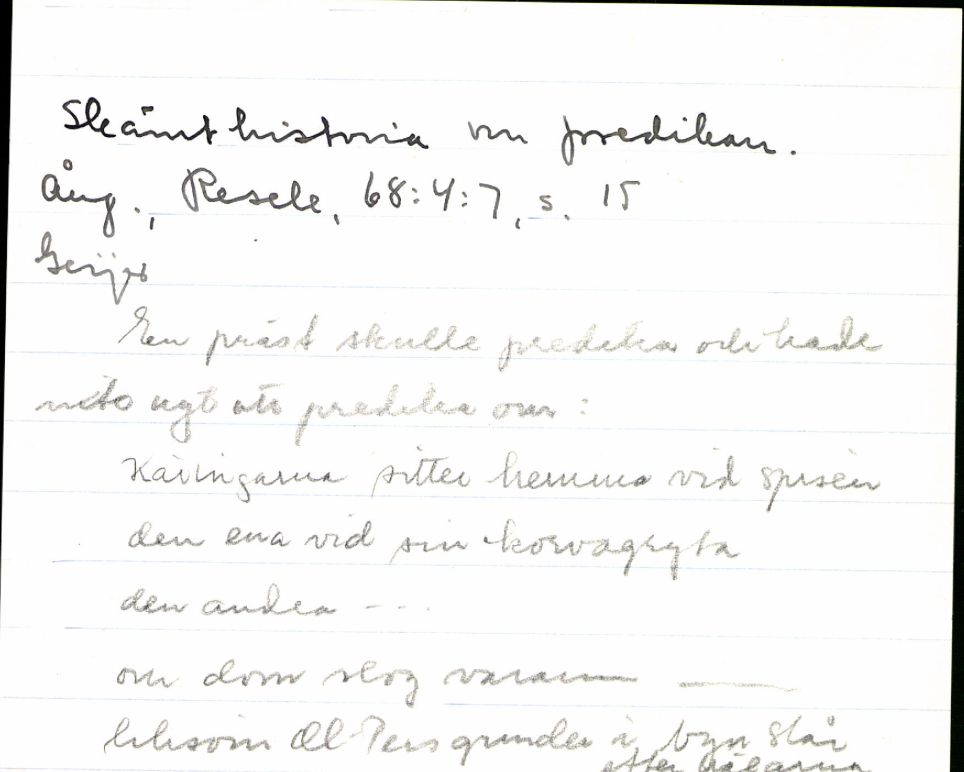 Skämthistoria om predikan.
Ång., Resele, 68:4:7, s. 15
En präst skulle predika och hade
nytt att predika om:
Käringarna sitter hemma vid spisen
den ena vid sin korvagryta
den andra ---
om dom slog varann ——
liksom Ol-Pers grundes i byn slår
etter